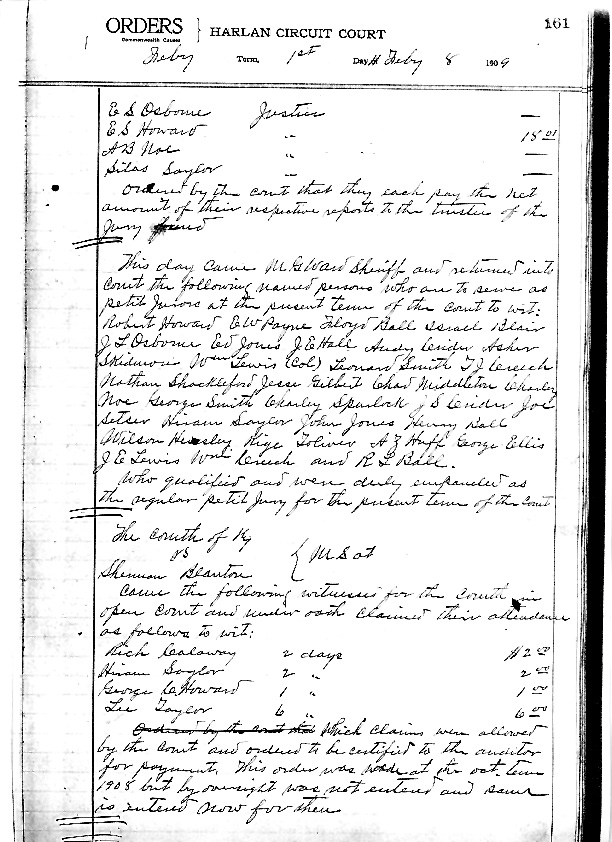 161
ORDERS } HARLAN CIRCUIT COURT
Commonwealth Causes
Feby Term, 1st Day Feby 8 1909
E S Osborne Justice —
E S Howard " 18 01
A B Noe " —
Silas Saylor — —
Ordered by the court that they each pay the net
amount of their respective reports to the trustee of the
Jury fund
This day came M G Ward Sheriff and returned into
Court the following named persons who are to serve as
petit Jurors at the present term of the Court to wit:
Robert Howard E W Payne Floyd Ball Israel Blair
J L Osborne Ed Jones J E Hall Andy Creider Asher
Skidmore Wm Lewis (Col) Leonard Smith T J Creech
Nathan Shackleford Jesse Gilbert Chad Middleton Charley
Noe George Smith Charley Spurlock J S Creider Joe
Setser Hiram Saylor John Jones Henry Ball
Wilson Hensley Kige Toliver A Z Huff George Ellis
J E Lewis Wm Creech and R L Ball.
Who qualified and were duly empaneled as
the regular petit Jury for the present term of the Court
The Comth of Ky
vs { M S at
Sherman Blanton
Came the following witnesses for the Comth in
open Court and under oath claimed their attendance
as follows to wit:
Rich Calaway 2 days $2 00
Hiram Saylor 2 " 2 00
George C Howard 1 " 1 00
Lee Taylor 6 " 6 00
Ordered by the Court that Which claims were allowed
by the Court and ordered to be certified to the auditor
for payment. This order was made at the Oct. term
1908 but by oversight was not entered and same
is entered now for then